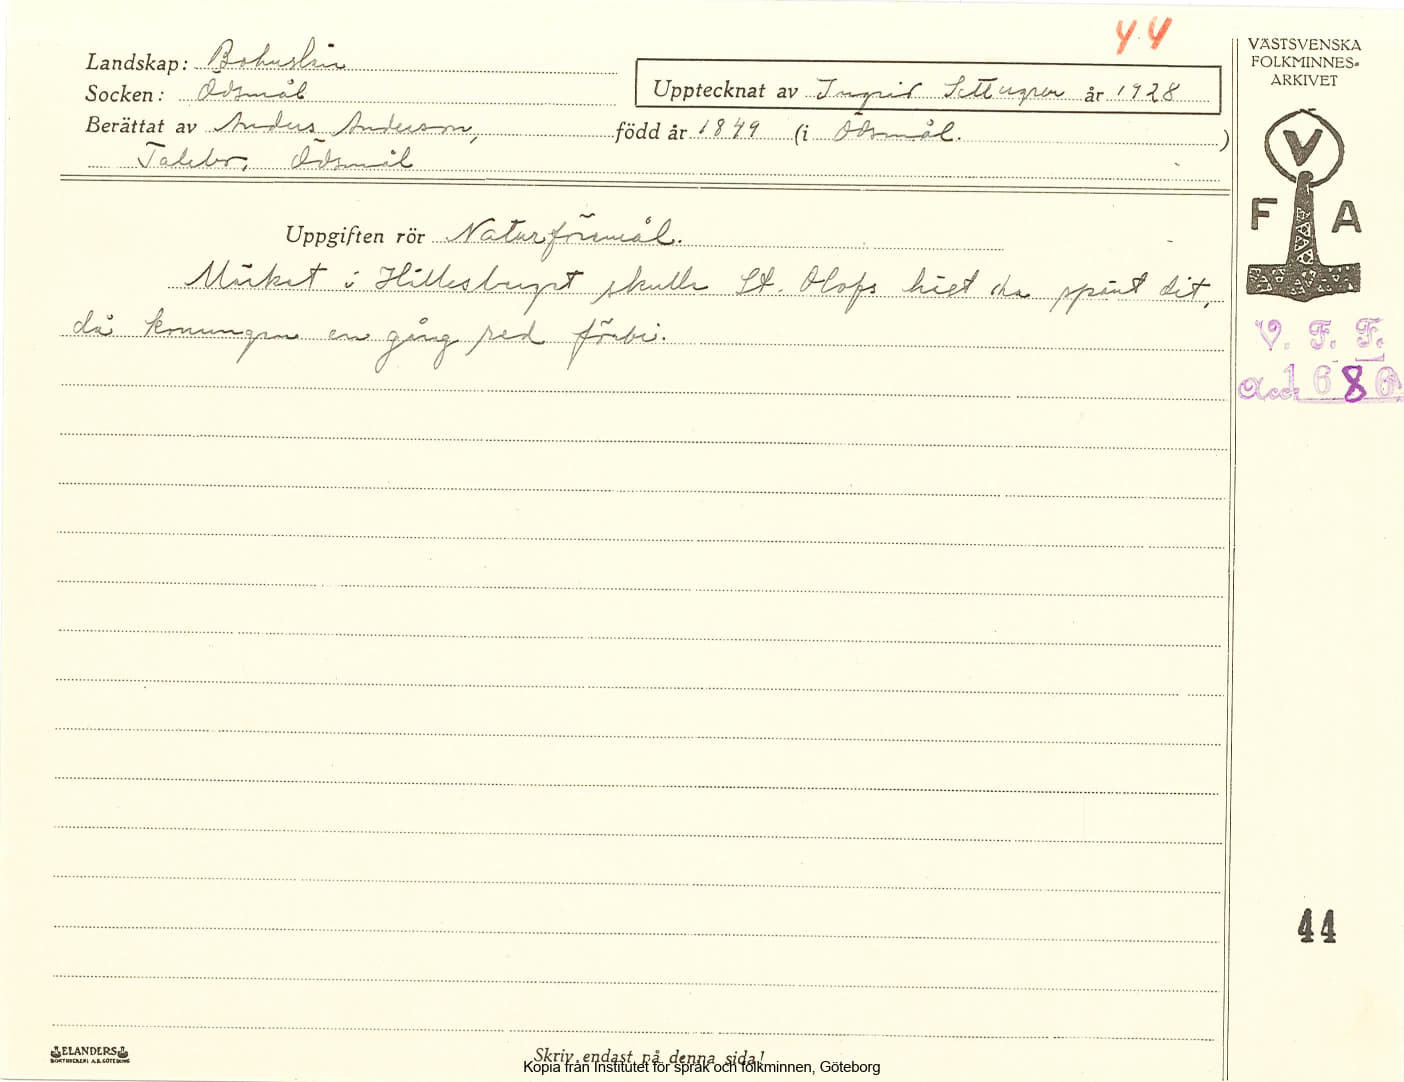 44
Landskap: Bohuslän
Socken: Ödsmål
Upptecknat av Ingrid år 1928
Berättat av Anders Anderson, född år 1849 (i Ödsmål.)
Talebo, Ödsmål
Uppgiften rör Naturföremål.
Märket i Hillesberget skulle St. Olofs häst ha spänt dit,
då konungen en gång red förbi.
VÄSTSVENSKA
FOLKMINNES-
ARKIVET
V
F A
V. F. F.
Acc. 1680
44
ELANDERS
BOKTRYCKERI A.B. GÖTEBORG
Skriv endast på denna sida!
Kopia från Institutet för språk och folkminnen, Göteborg